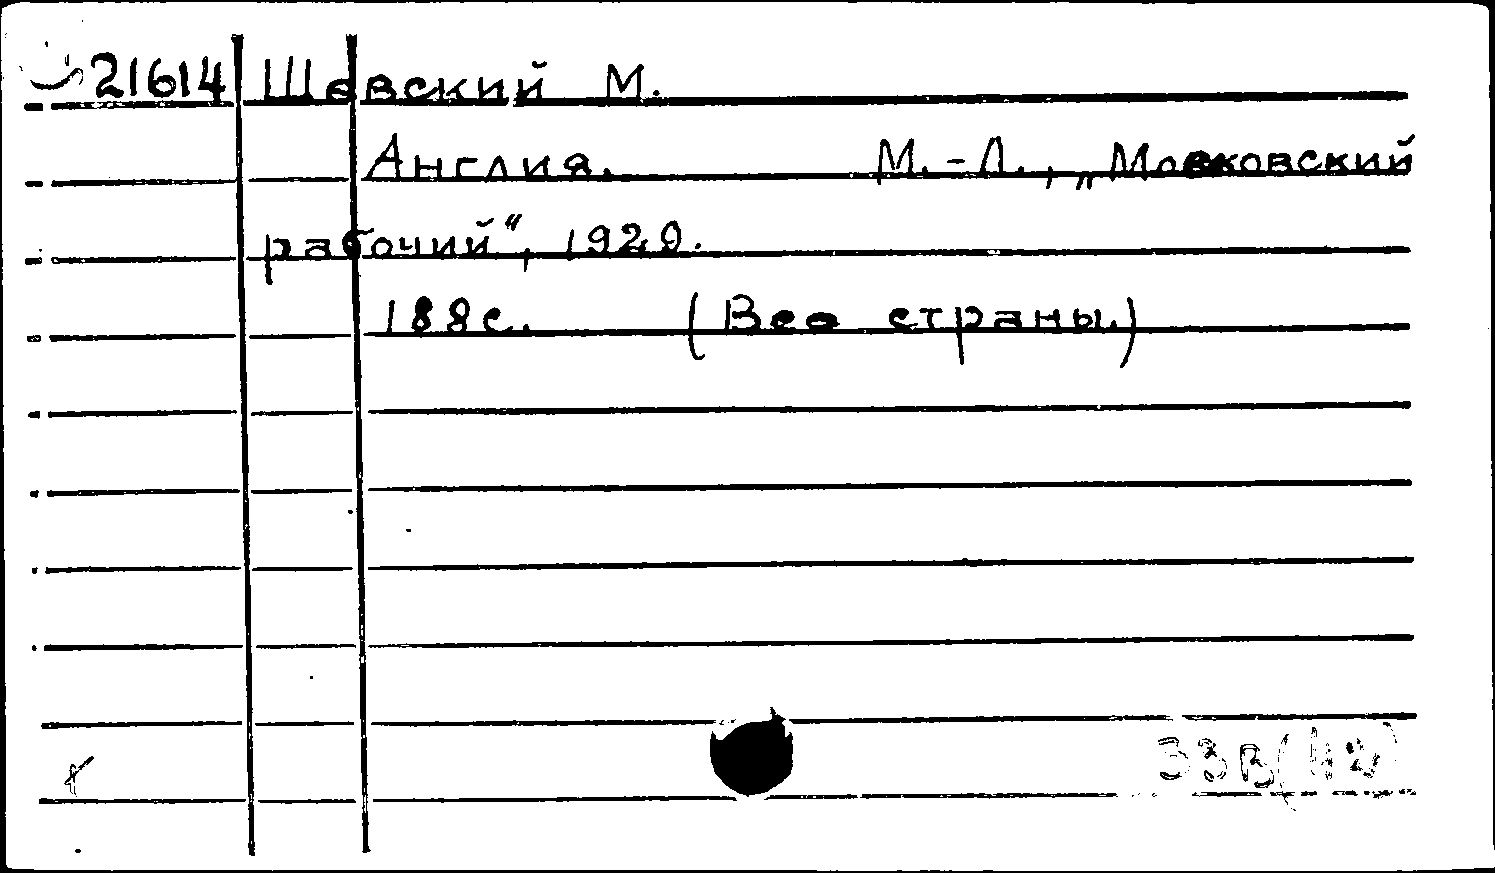 21614 Шевский М.
Англия. М.-Л., „Московский
рабочий", 1929.
188с. (Все страны.)
33В(42)